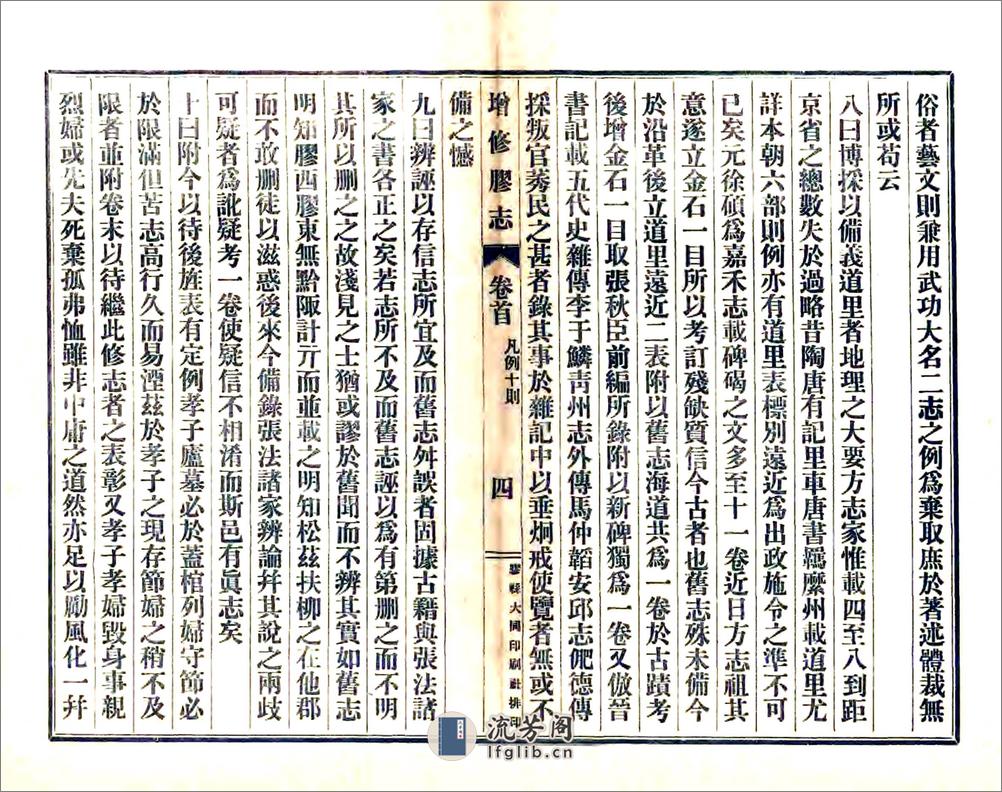 俗者藝文則兼用武功大名二志之例爲棄取庶於著述體裁無
所或苟云
八曰博採以備義道里者地理之大要方志家惟載四至八到距
京省之總數失於過略昔陶唐有記里車唐書羈縻州載道里尤
詳本朝六部則例亦有道里表標別遠近爲出政施令之準不可
已矣元徐碩爲嘉禾志載碑碣之文多至十一卷近日方志祖其
意遂立金石一目所以考訂殘缺質信今古者也舊志殊未備今
於沿革後立道里遠近二表附以舊志海道共爲一卷於古蹟考
後增金石一目取張秋臣前編所錄附以新碑獨爲一卷又倣晉
書記載五代史雜傳李于鱗靑州志外傳馬仲韜安邱志俷德傳
採叛官莠民之甚者錄其事於雜記中以垂炯戒使覽者無或不
增修膠志 卷首 凡例十則 四 膠縣大同印刷社排印
備之憾
九曰辨誣以存信志所宜及而舊志舛誤者固據古籍與張法諸
家之書各正之矣若志所不及而舊志誣以爲有第刪之而不明
其所以刪之之故淺見之士猶或謬於舊聞而不辨其實如舊志
明知膠西膠東無黔陬計亓而並載之明知松茲扶柳之在他郡
而不敢刪徒以滋惑後來今備錄張法諸家辨論幷其說之兩歧
可疑者爲訛疑考一卷使疑信不相淆而斯邑有眞志矣
十曰附今以待後旌表有定例孝子廬墓必於蓋棺列婦守節必
於限滿但苦志高行久而易湮茲於孝子之現存節婦之稍不及
限者並附卷末以待繼此修志者之表彰又孝子孝婦毀身事親
烈婦或先夫死棄孤弗恤雖非中庸之道然亦足以勵風化一幷
流芳阁
lfglib.cn